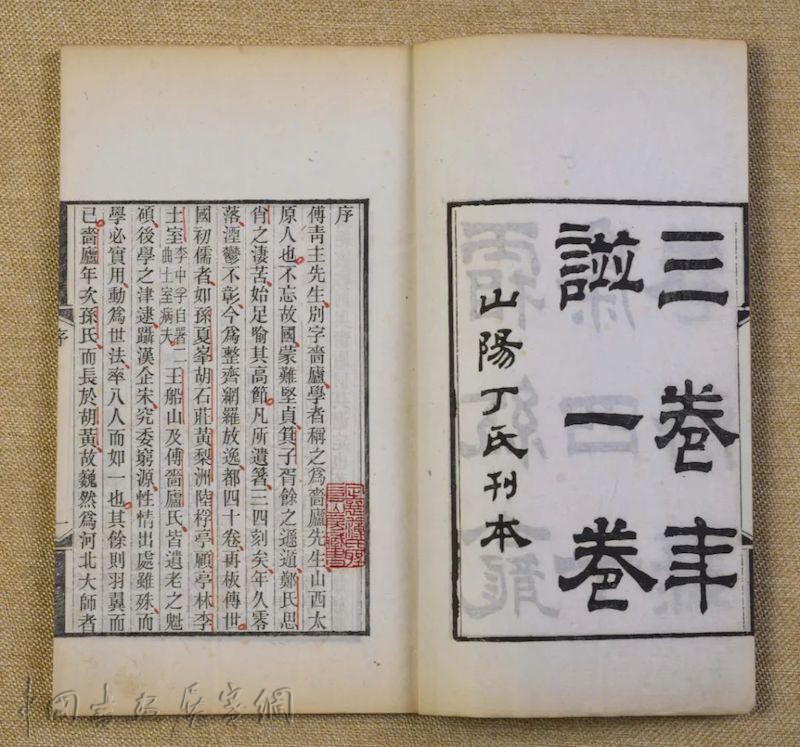 三卷年
譜一卷
山陽丁氏刊本
序
傅青主先生別字嗇廬學者稱之爲嗇廬先生山西太
原人也不忘故國蒙難堅貞箕子胥餘之遯遁鄭氏思
肖之淒苦始足喻其高節凡所遺著三四刻矣年久零
落湮鬱不彰今爲整齊網羅放逸都四十卷再板傳世
國初儒者如孫夏峯胡石莊黃梨洲陸桴亭顧亭林李
土室李中孚自署二曲土室病夫王船山及傅嗇廬氏皆遺老之魁
碩後學之津逮躡漢企宋究委窮源性情出處雖殊而
學必實用動爲世法率八人而如一也其餘則羽翼而
已嗇廬年次孫氏而長於胡黃故巍然爲河北大師者
序
一